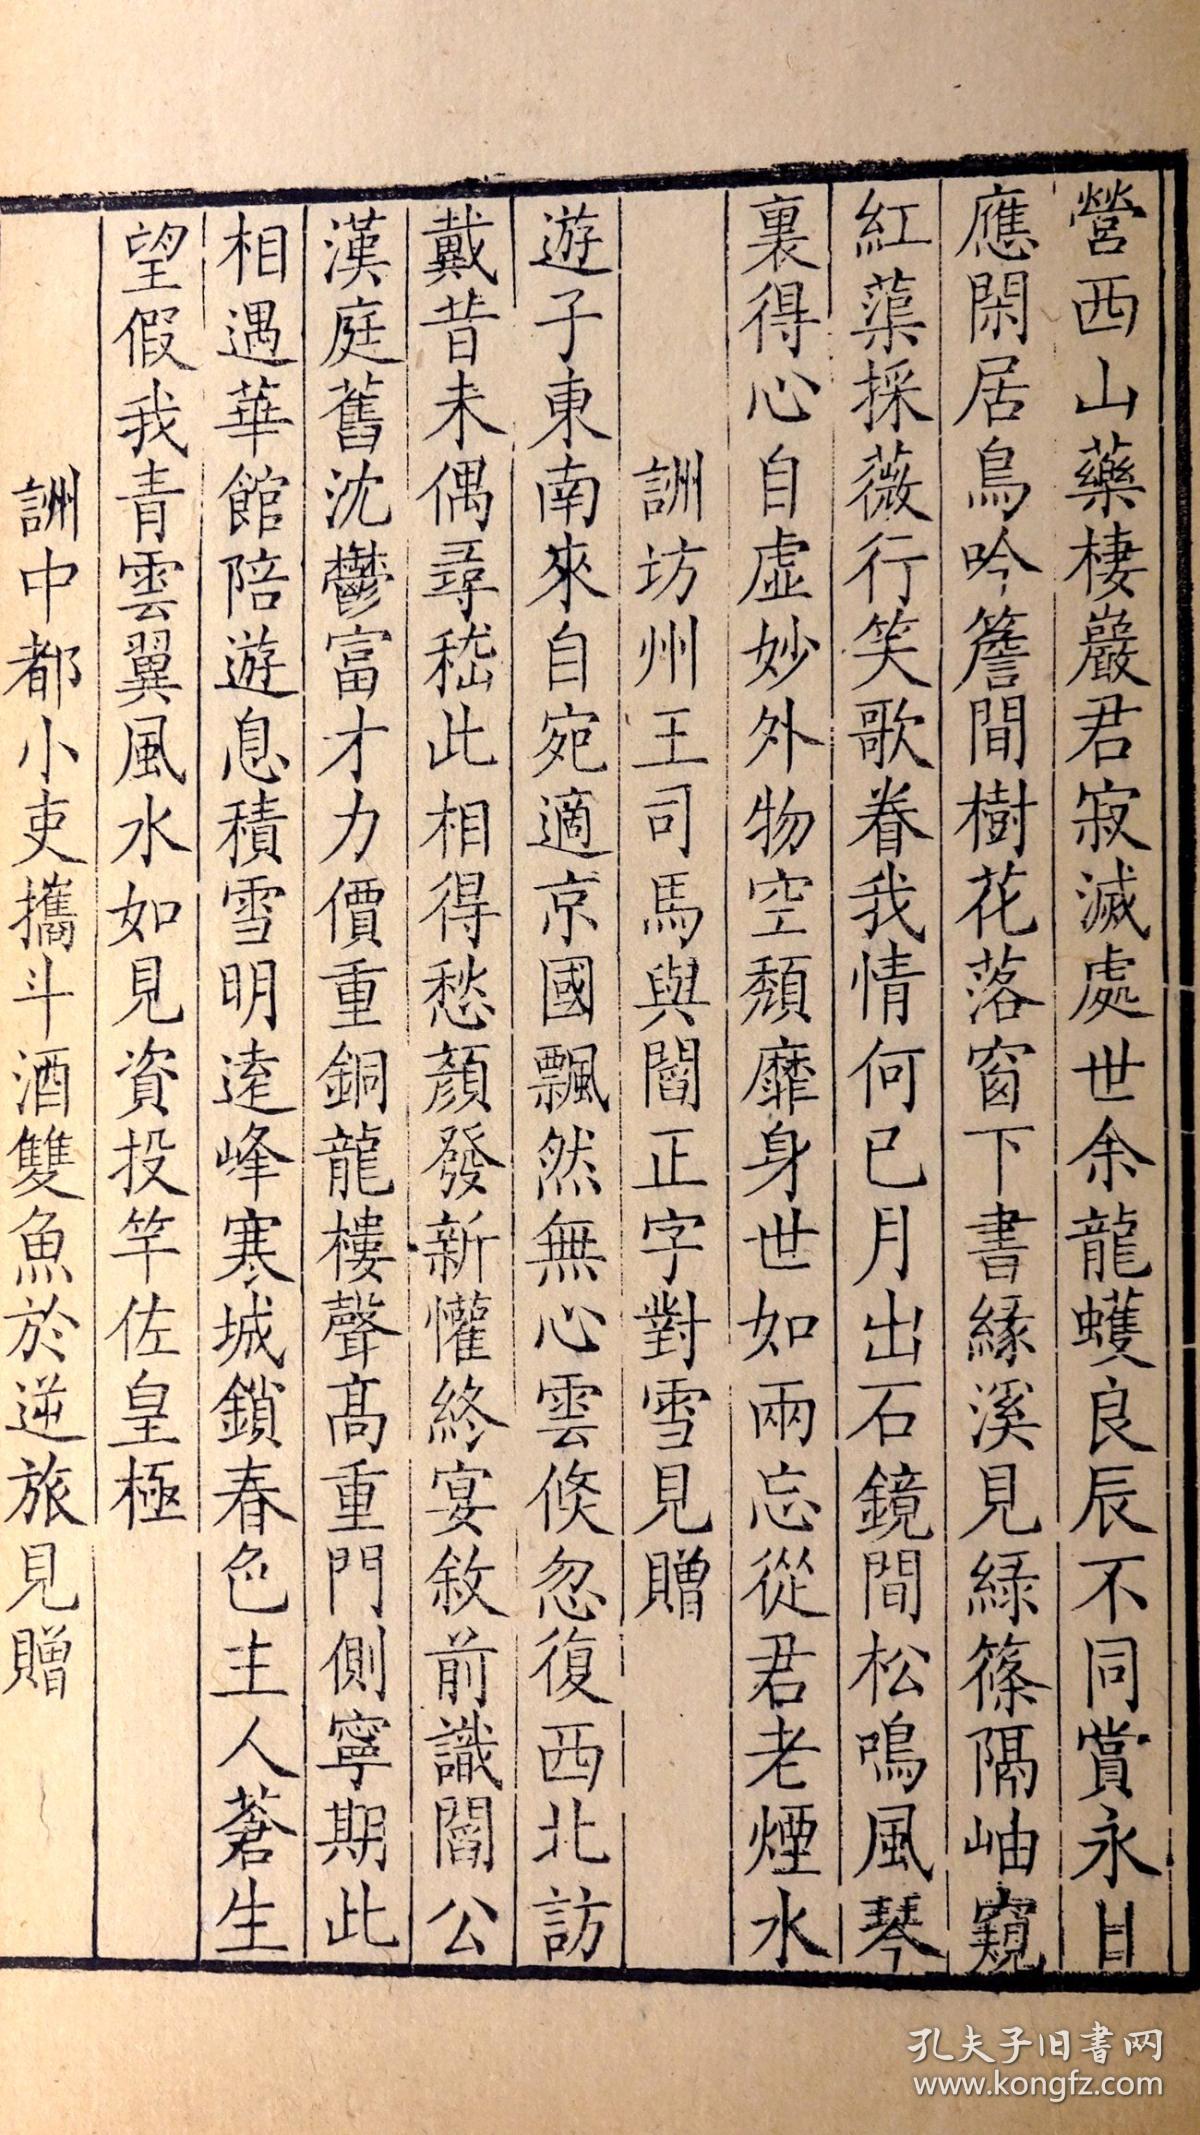 營西山藥棲巖君寂滅處世余龍蠖良辰不同賞永日
應閑居鳥吟簷間樹花落窗下書緣溪見綠篠隔岫窺
紅蕖採薇行笑歌眷我情何已月出石鏡間松鳴風琴
裏得心自虛妙外物空頹靡身世如兩忘從君老煙水
詶坊州王司馬與閻正字對雪見贈
遊子東南來自宛適京國飄然無心雲倏忽復西北訪
戴昔未偶尋嵇此相得愁顏發新懽終宴敘前識閻公
漢庭舊沈鬱富才力價重銅龍樓聲高重門側寧期此
相遇華館陪遊息積雪明遠峰寒城鎖春色主人蒼生
望假我青雲翼風水如見資投竿佐皇極
詶中都小吏攜斗酒雙魚於逆旅見贈
孔夫子旧书网
www.kongfz.com